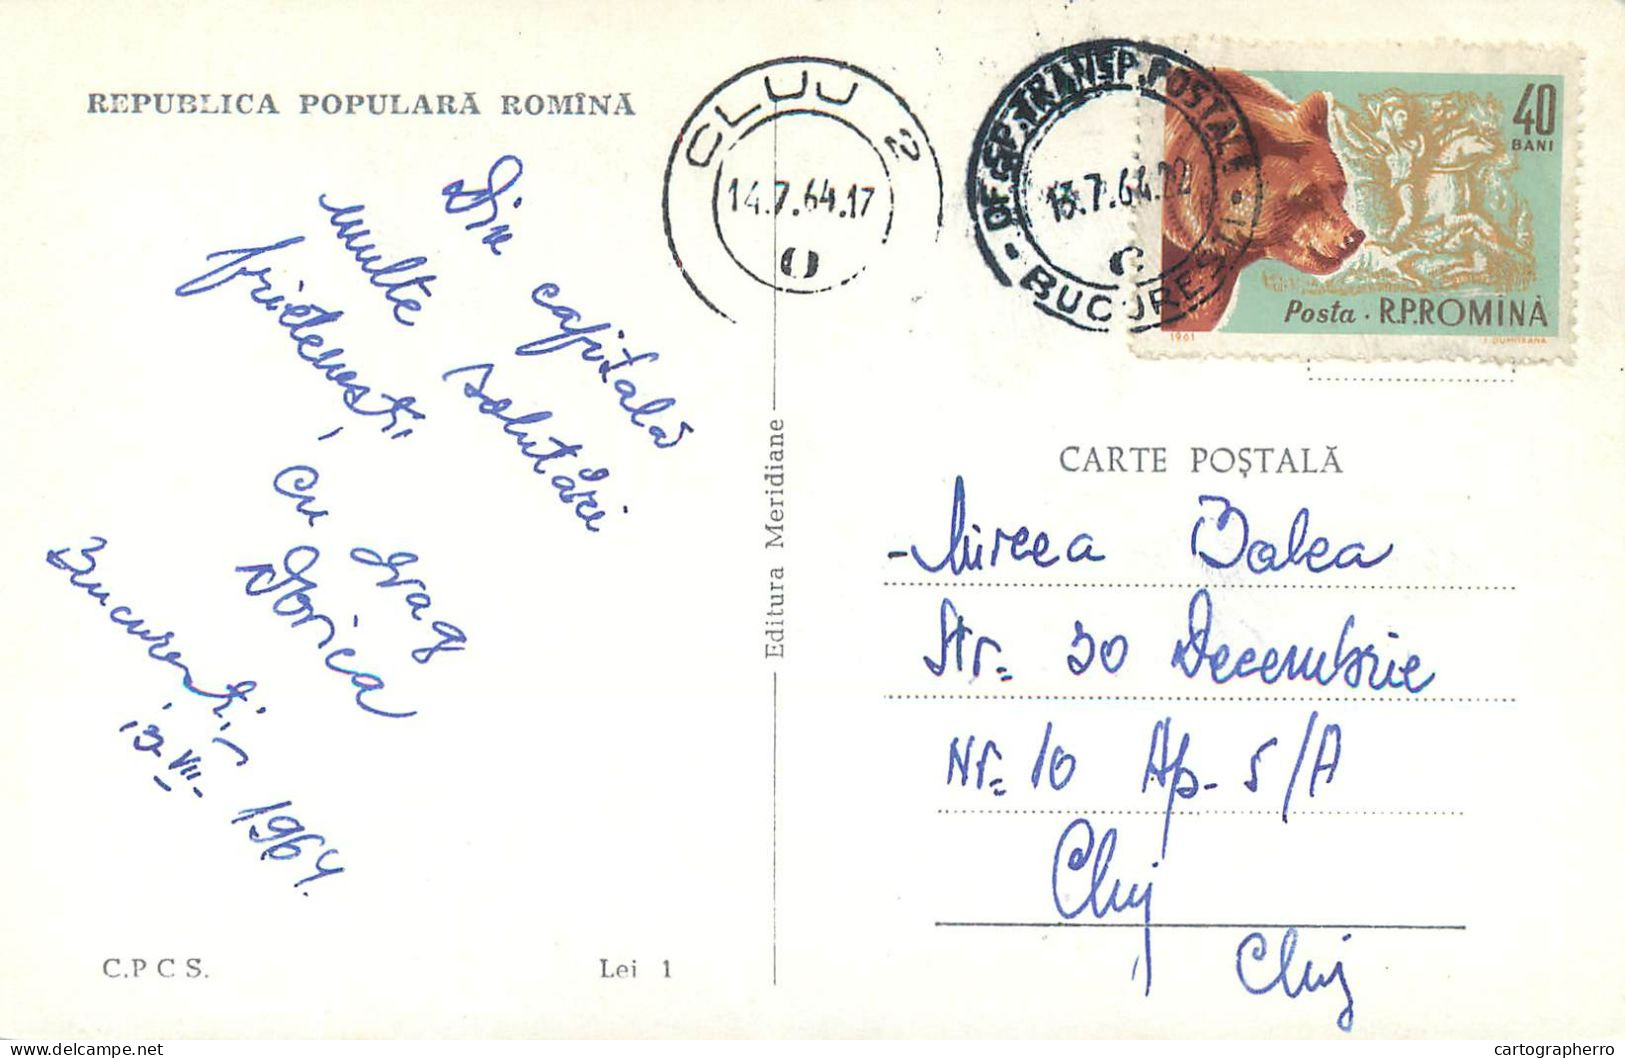 REPUBLICA POPULARĂ ROMÎNĂ
Din capitală
multe salutări
prietenești, cu drag
Dorica
București,
13 VII- 1964.
C.P C S.
Lei 1
Editura Meridiane
CLUJ 2
14.7.64.17
DESP.TRANSP.POSTALE
13.7.64.22
BUCUREȘTI
40
BANI
Posta · R.P.ROMÎNĂ
1961
CARTE POȘTALĂ
Mircea Balea
Str. 30 Decembrie
Nr. 10 Ap- 5/A
Cluj
Cluj
delcampe.net
cartographerro